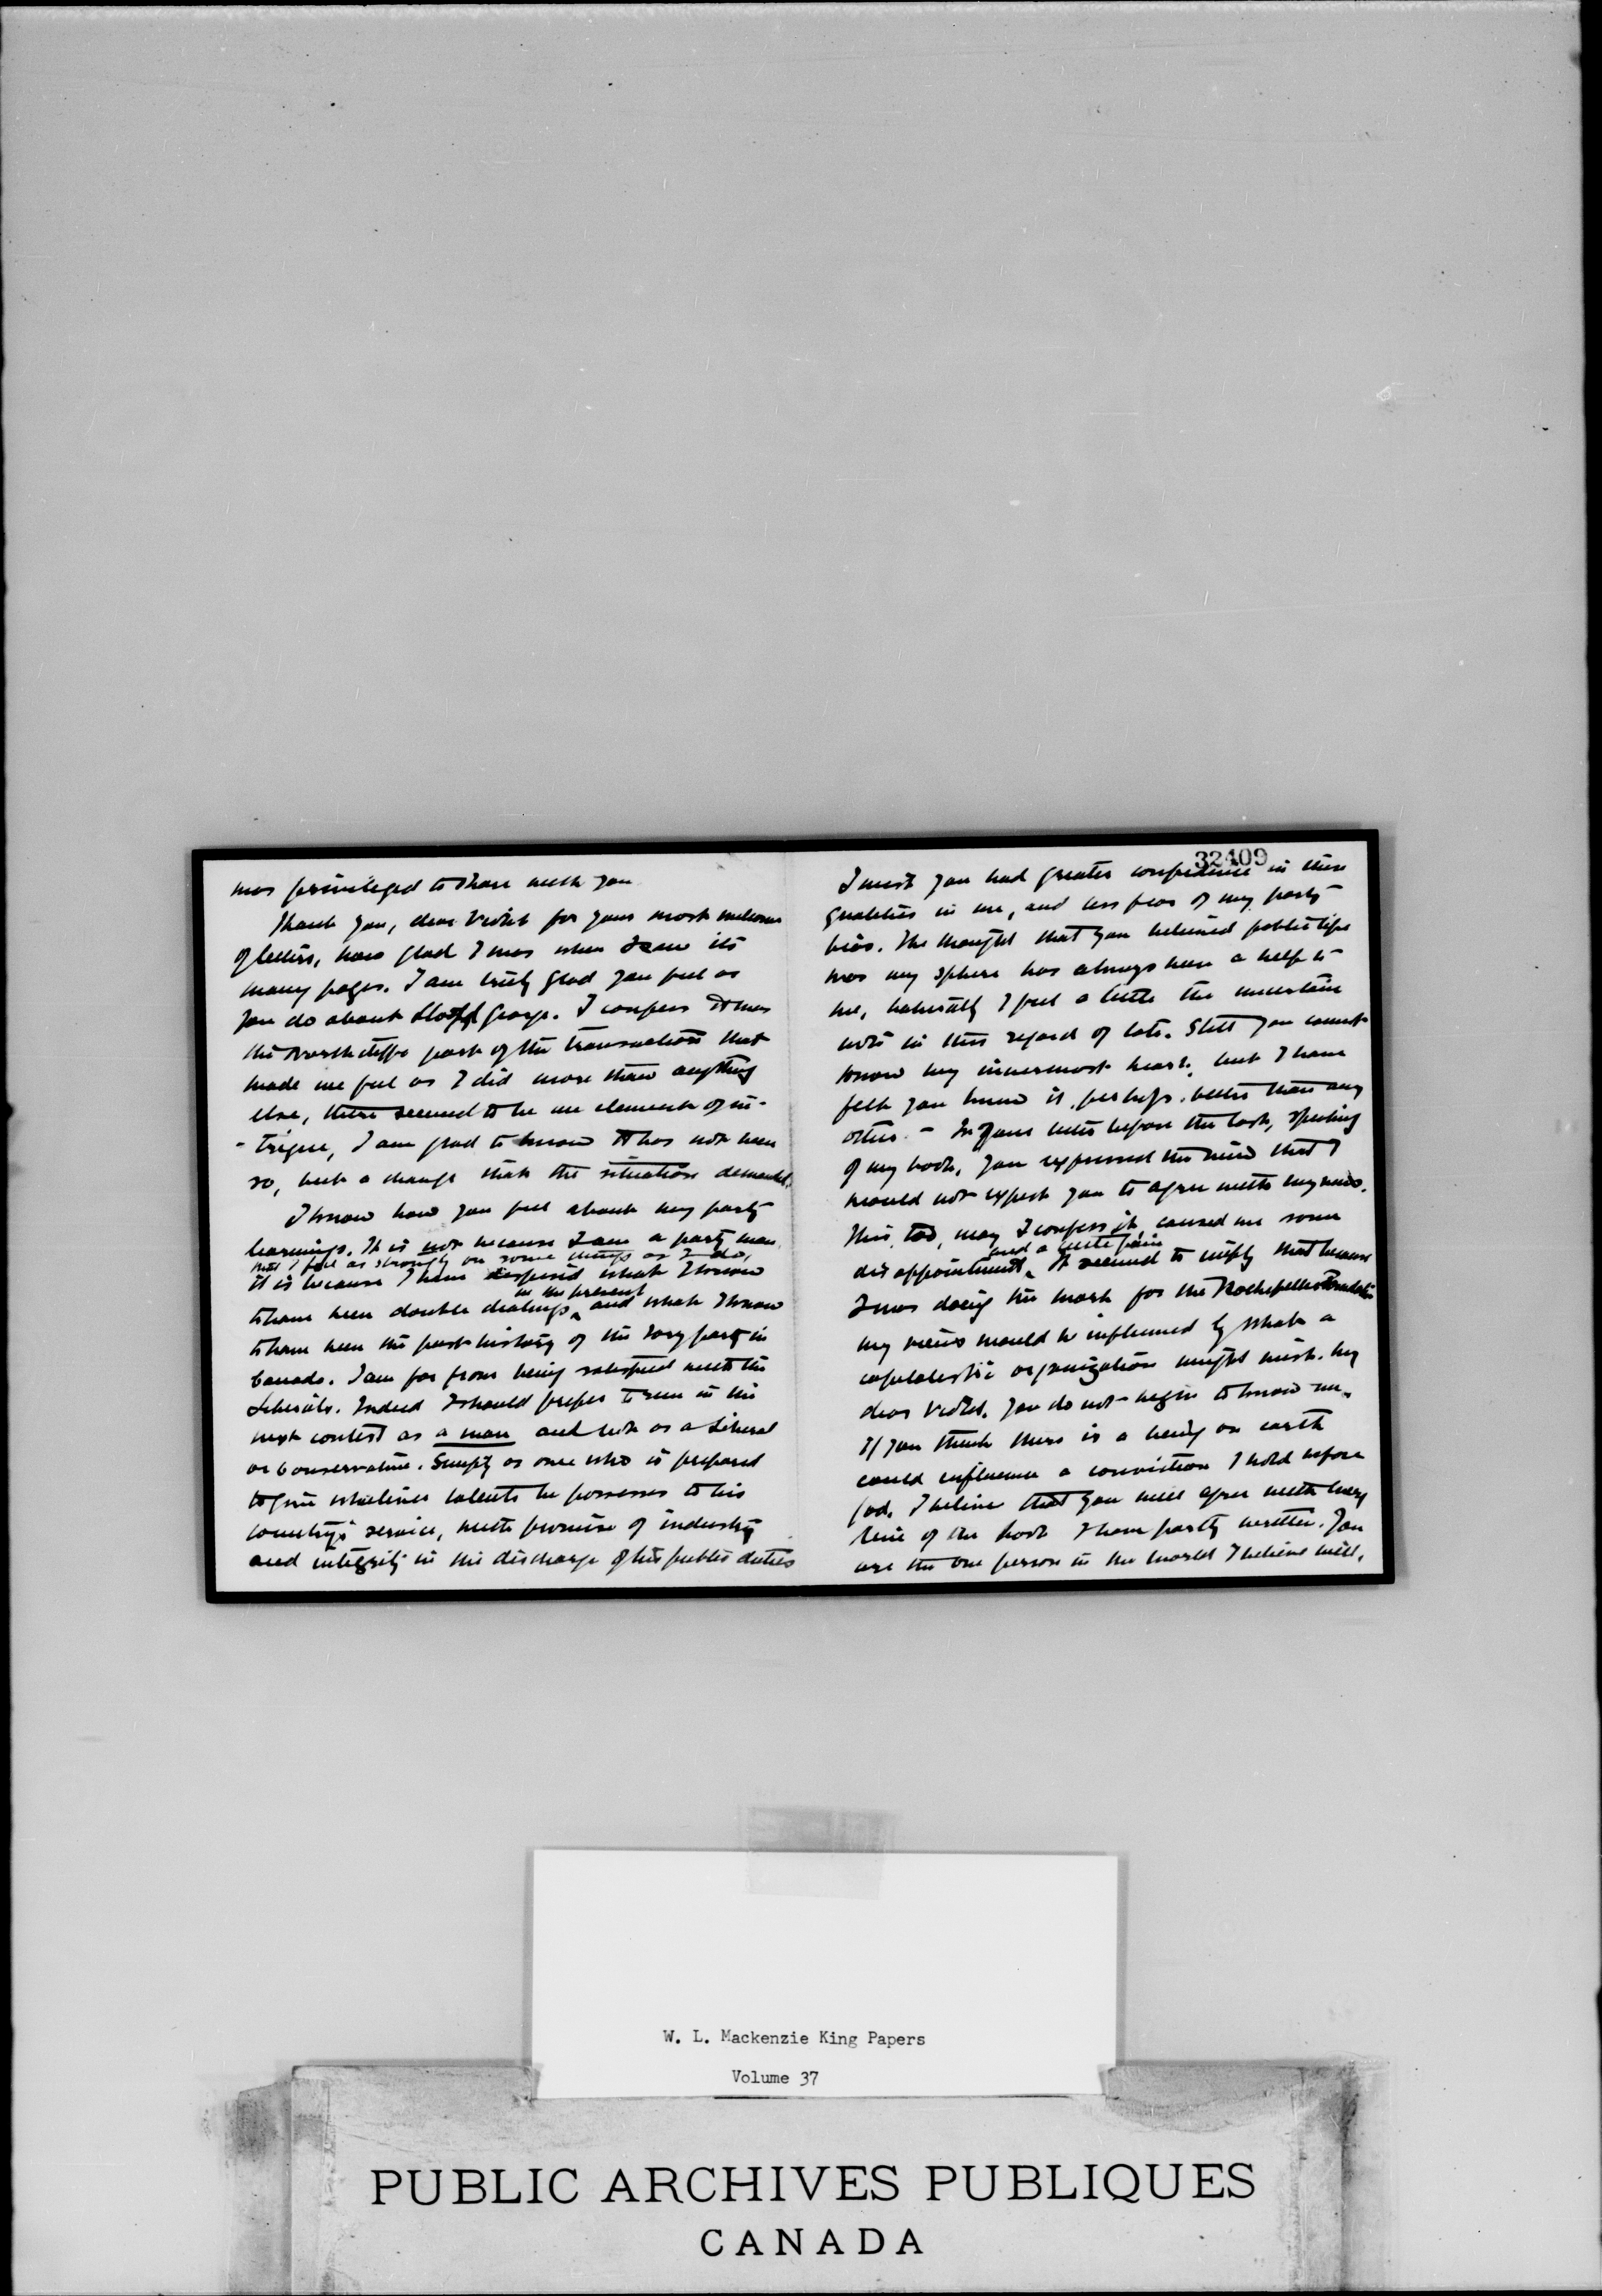 was privileged to share with you
Thank you, dear Violet for your most welcome
of letters, how glad I was when I saw its
many pages. I am truly glad you feel as
you do about Lloyd George. I confess it was
the Northcliffe part of the transaction that
made me feel as I did more than anything
else, there seemed to be an element of in-
-trigue, I am glad to know it has not been
so, but a change that the situation demanded.
I know how you feel about my party
leanings. It is not because I am a party man
that I feel as strongly on some things as I do,
it is because I have despised what I know
in the present
to have been double dealings and what I know
to have been the past history of the Tory party in
Canada. I am far from being satisfied with the
Liberals. Indeed I should prefer to run in the
next contest as a man and not as a Liberal
or Conservative. Simply as one who is prepared
to give whatever talents he possesses to his
country's service, with promise of industry
and integrity in the discharge of his public duties
32409
I wish you had greater confidence in these
qualities in me, and less fear of my party
bias. The thought that you believed public life
was my sphere has always been a help to
me, naturally I feel a little the uncertain
note in this regard of late. Still you cannot
know my innermost heart, but I have
felt you knew it, perhaps, better than any
other. - In your letter before the last, speaking
of my book, you expressed the view that I
would not expect you to agree with my views.
This, too, may I confess it, caused me some
and a little pain
disappointment. It seemed to imply that because
I was doing the work for the Rockefeller Foundation
my views would be influenced by what a
capitalistic organization might wish. My
dear Violet, you do not begin to know me,
if you think there is a being on earth
could influence a conviction I hold before
God. I believe that you will agree with every
line of the book I have partly written. You
are the one person in the world I believe will,
W. L. Mackenzie King Papers
Volume 37
PUBLIC ARCHIVES PUBLIQUES
CANADA